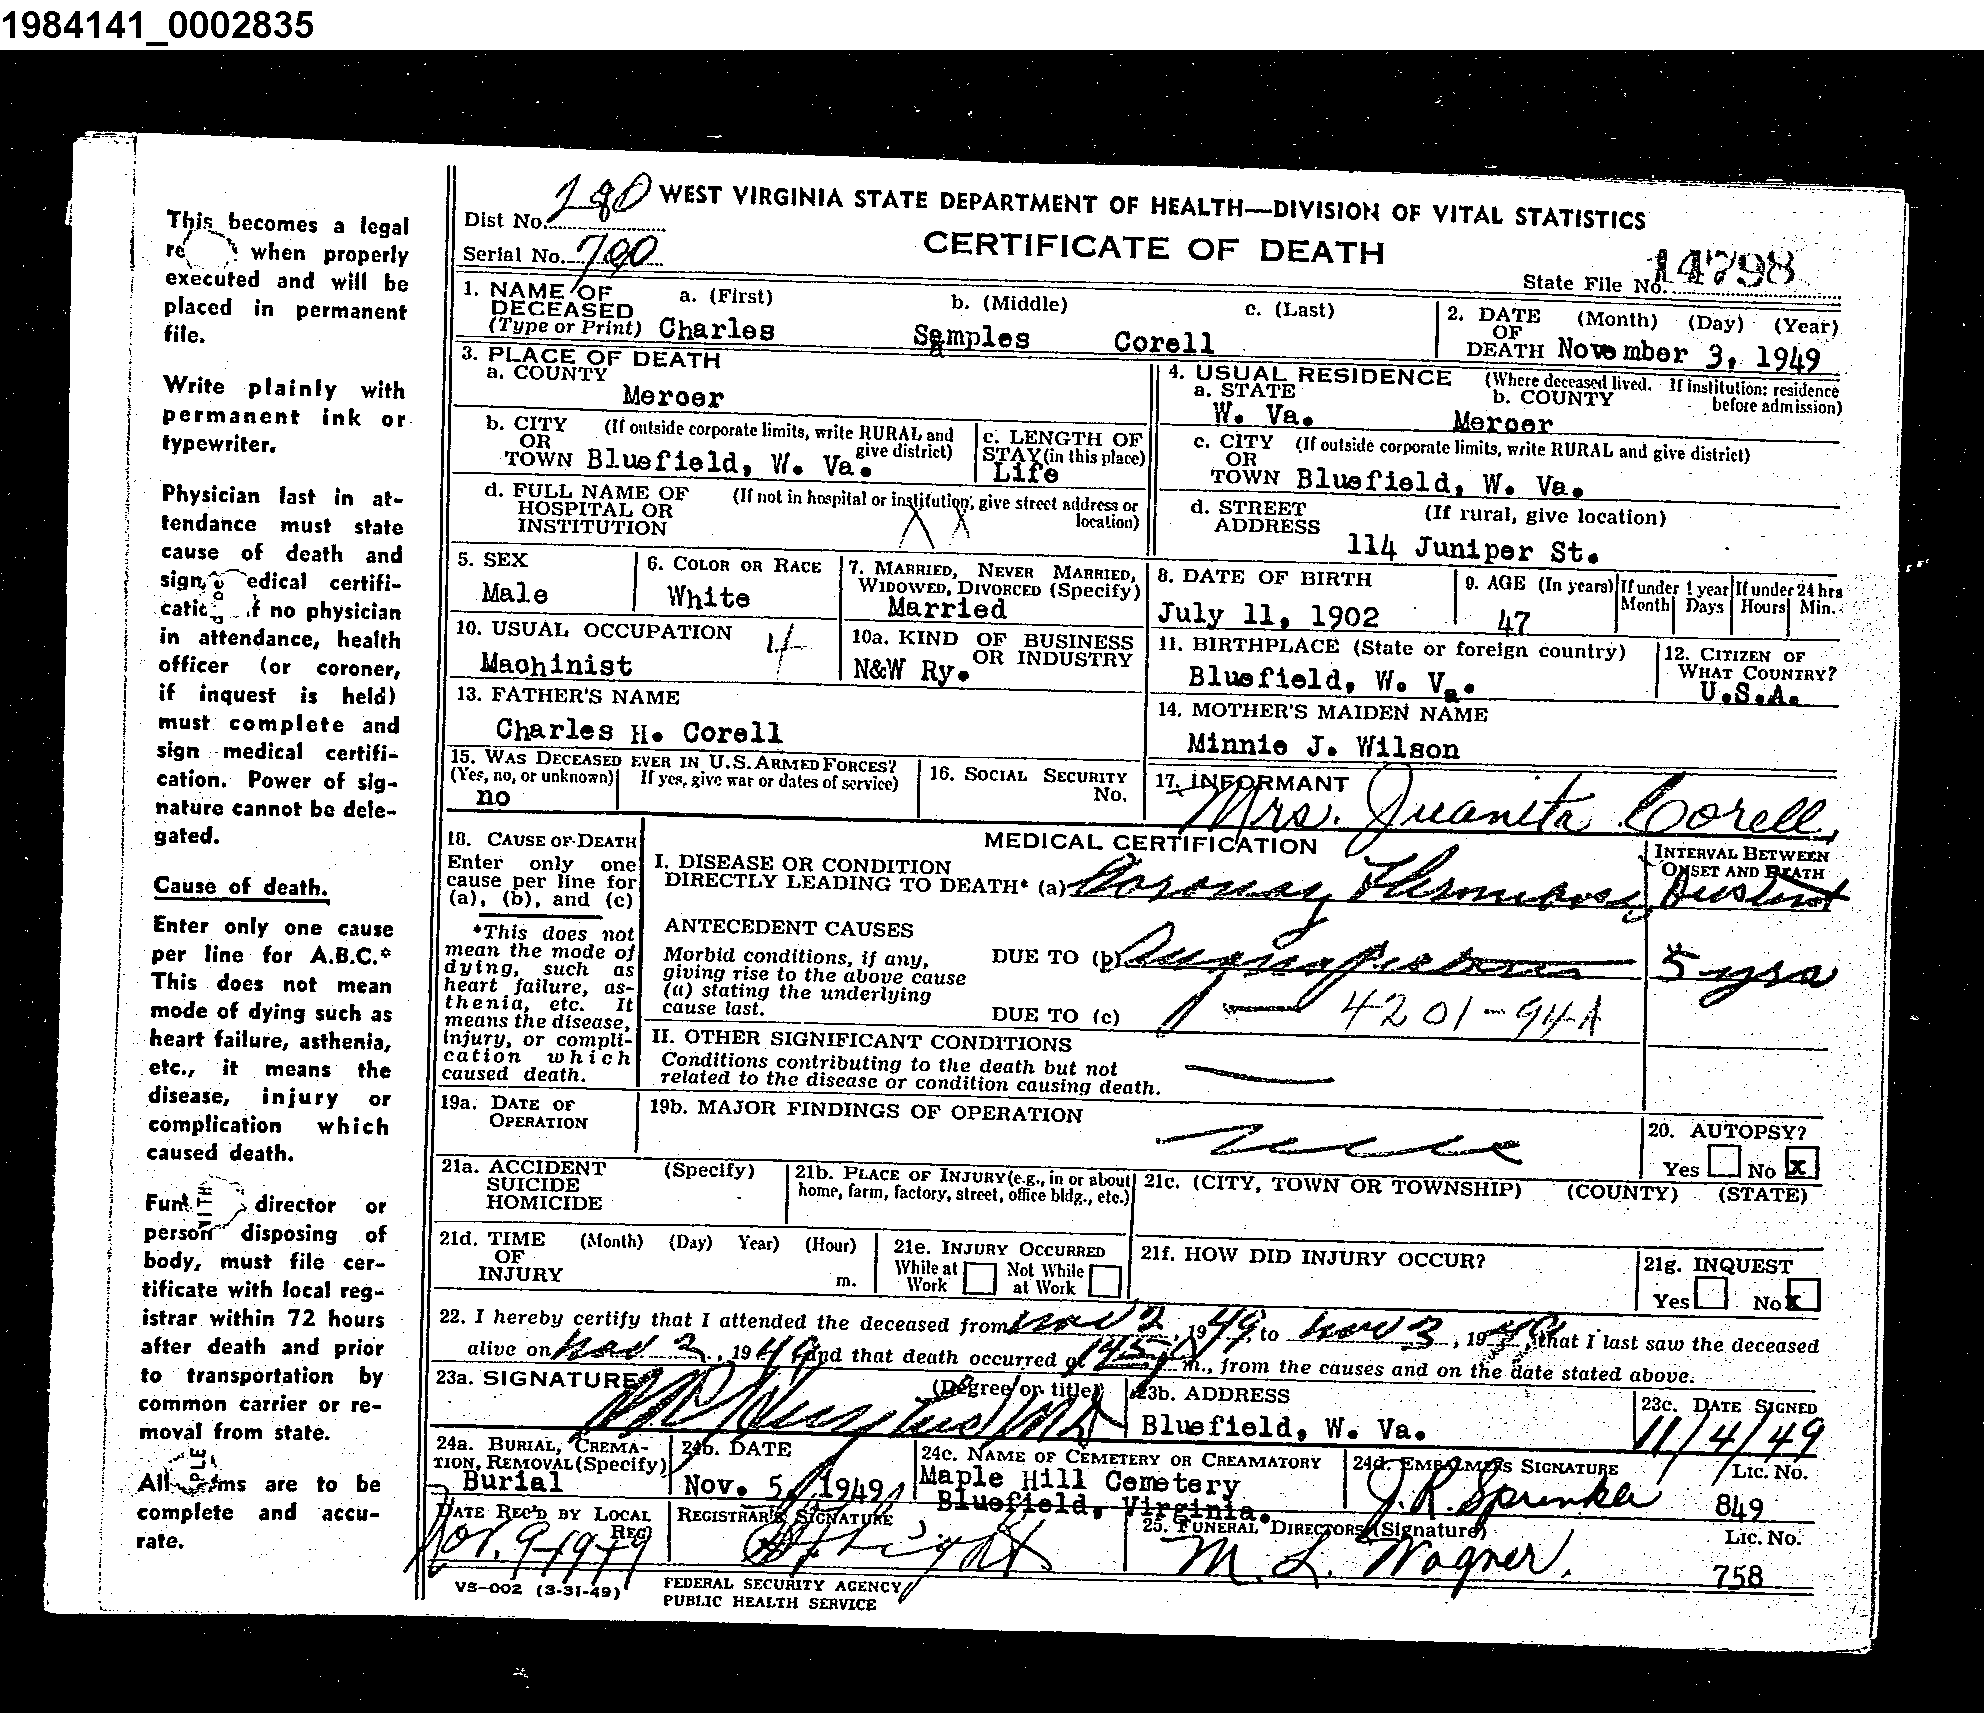 1984141_0002835
This becomes a legal
when properly
executed and will be
placed in permanent
file.
Write plainly with
permanent ink or
typewriter.
Physician last in at-
tendance must state
cause of death and
sign edical certifi-
catic f no physician
in attendance, health
officer (or coroner,
if inquest is held)
must complete and
sign medical certifi-
cation. Power of sig-
nature cannot be dele-
gated.
Cause of death.
Enter only one cause
per line for A.B.C.*
This does not mean
mode of dying such as
heart failure, asthenia,
etc., it means the
disease, injury or
complication which
caused death.
Fun director or
person disposing of
body, must file cer-
tificate with local reg-
istrar within 72 hours
after death and prior
to transportation by
common carrier or re-
moval from state.
All ms are to be
complete and accu-
rate.
Dist No. 280 WEST VIRGINIA STATE DEPARTMENT OF HEALTH—DIVISION OF VITAL STATISTICS
Serial No. 700 CERTIFICATE OF DEATH
State File No. 14798
1. NAME OF DECEASED (Type or Print) a. (First) Charles b. (Middle) Samples c. (Last) Corell
2. DATE OF DEATH (Month) (Day) (Year) November 3, 1949
3. PLACE OF DEATH
a. COUNTY Mercer
b. CITY OR TOWN (If outside corporate limits, write RURAL and give district) Bluefield, W. Va.
c. LENGTH OF STAY (in this place) Life
d. FULL NAME OF HOSPITAL OR INSTITUTION (If not in hospital or institution, give street address or location) XX
4. USUAL RESIDENCE (Where deceased lived. If institution: residence before admission)
a. STATE W. Va. b. COUNTY Mercer
c. CITY OR TOWN (If outside corporate limits, write RURAL and give district) Bluefield, W. Va.
d. STREET ADDRESS (If rural, give location) 114 Juniper St.
5. SEX Male
6. COLOR OR RACE White
7. MARRIED, NEVER MARRIED, WIDOWED, DIVORCED (Specify) Married
8. DATE OF BIRTH July 11, 1902
9. AGE (In years) 47 If under 1 year Month Days If under 24 hrs Hours Min.
10. USUAL OCCUPATION Machinist 4
10a. KIND OF BUSINESS OR INDUSTRY N&W Ry.
11. BIRTHPLACE (State or foreign country) Bluefield, W. Va.
12. CITIZEN OF WHAT COUNTRY? U.S.A.
13. FATHER'S NAME Charles H. Corell
14. MOTHER'S MAIDEN NAME Minnie J. Wilson
15. WAS DECEASED EVER IN U.S. ARMED FORCES? (Yes, no, or unknown) no If yes, give war or dates of service)
16. SOCIAL SECURITY No.
17. INFORMANT Mrs. Juanita Corell
18. CAUSE OF DEATH
Enter only one
cause per line for
(a), (b), and (c)
*This does not
mean the mode of
dying, such as
heart failure, as-
thenia, etc. It
means the disease,
injury, or compli-
cation which
caused death.
MEDICAL CERTIFICATION
INTERVAL BETWEEN ONSET AND DEATH
I. DISEASE OR CONDITION
DIRECTLY LEADING TO DEATH* (a) Coronary Thrombosis Instant
ANTECEDENT CAUSES
Morbid conditions, if any,
giving rise to the above cause
(a) stating the underlying
cause last.
DUE TO (b) Angina Pectoris 5 yrs
DUE TO (c) — 4201-94A
II. OTHER SIGNIFICANT CONDITIONS
Conditions contributing to the death but not
related to the disease or condition causing death. —
19a. DATE OF OPERATION
19b. MAJOR FINDINGS OF OPERATION
20. AUTOPSY? Yes No X
21a. ACCIDENT SUICIDE HOMICIDE (Specify)
21b. PLACE OF INJURY (e.g., in or about home, farm, factory, street, office bldg., etc.)
21c. (CITY, TOWN OR TOWNSHIP) (COUNTY) (STATE)
21d. TIME OF INJURY (Month) (Day) Year) (Hour) m.
21e. INJURY OCCURRED While at Work Not While at Work
21f. HOW DID INJURY OCCUR?
21g. INQUEST Yes No X
22. I hereby certify that I attended the deceased from Nov 2, 1949, to Nov 3, 1949, that I last saw the deceased
alive on Nov 2, 1949 and that death occurred at m., from the causes and on the date stated above.
23a. SIGNATURE (Degree or title) MD
23b. ADDRESS Bluefield, W. Va.
23c. DATE SIGNED 11/4/49
24a. BURIAL, CREMATION, REMOVAL (Specify) Burial
24b. DATE Nov. 5, 1949
24c. NAME OF CEMETERY OR CREAMATORY Maple Hill Cemetery Bluefield, Virginia.
24d. EMBALMERS SIGNATURE J. R. Sprinkle Lic. No. 849
DATE REC'D BY LOCAL REG) Nov. 9-1949
REGISTRAR'S SIGNATURE
25. FUNERAL DIRECTORS (Signature) M. L. Wagner. Lic. No. 758
VS-002 (3-31-49) FEDERAL SECURITY AGENCY
PUBLIC HEALTH SERVICE